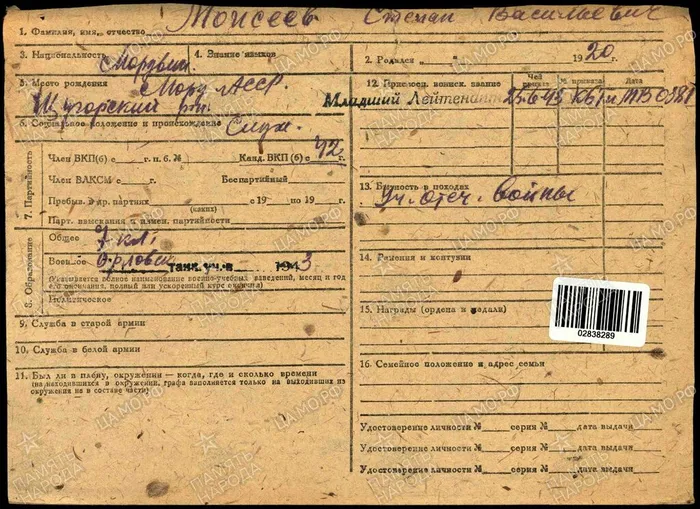 Моисеев Степан Васильевич
1. Фамилия, имя, отчество
3. Национальность Мордвин
4. Знание языков
2. Родился „ “ 1920г.
5. Место рождения Морд. АССР
р-н.
6. Социальное положение и происхождение Служ.
7. Партийность
Член ВКП(б) с г. п. б. №
Канд. ВКП (б) с 42 г.
Член ВЛКСМ с г.
Беспартийный
Пребыв. в др. партиях с 19 по 19 г.
(каких)
Парт. взыскания и измен. партийности
8. Образование
Общее 7 кл.
Военное Орловск. танк. уч-в 1943
(Указывается полное наименование военно-учебных заведений, месяц и год
его окончания, полный или ускоренный курс окончил)
Политическое
9. Служба в старой армии
10. Служба в белой армии
11. Был ли в плену, окружении — когда, где и сколько времени
(на находившихся в окружении, графа заполняется только на выходивших из
окружения не в составе части)
12. Присвоен. воинск. звание
Чей приказ
№ приказа
Дата
Младший Лейтенант 25.6.43 МВО 0381
13. Бытность в походах
Уч. Отеч. Войны
14. Ранения и контузии
15. Награды (ордена и медали)
02838289
16. Семейное положение и адрес семьи
Удостоверение личности № серия № дата выдачи
Удостоверение личности № серия № дата выдачи
Удостоверение личности № серия № дата выдачи
ПАМЯТЬ НАРОДА
ЦАМО.РФ